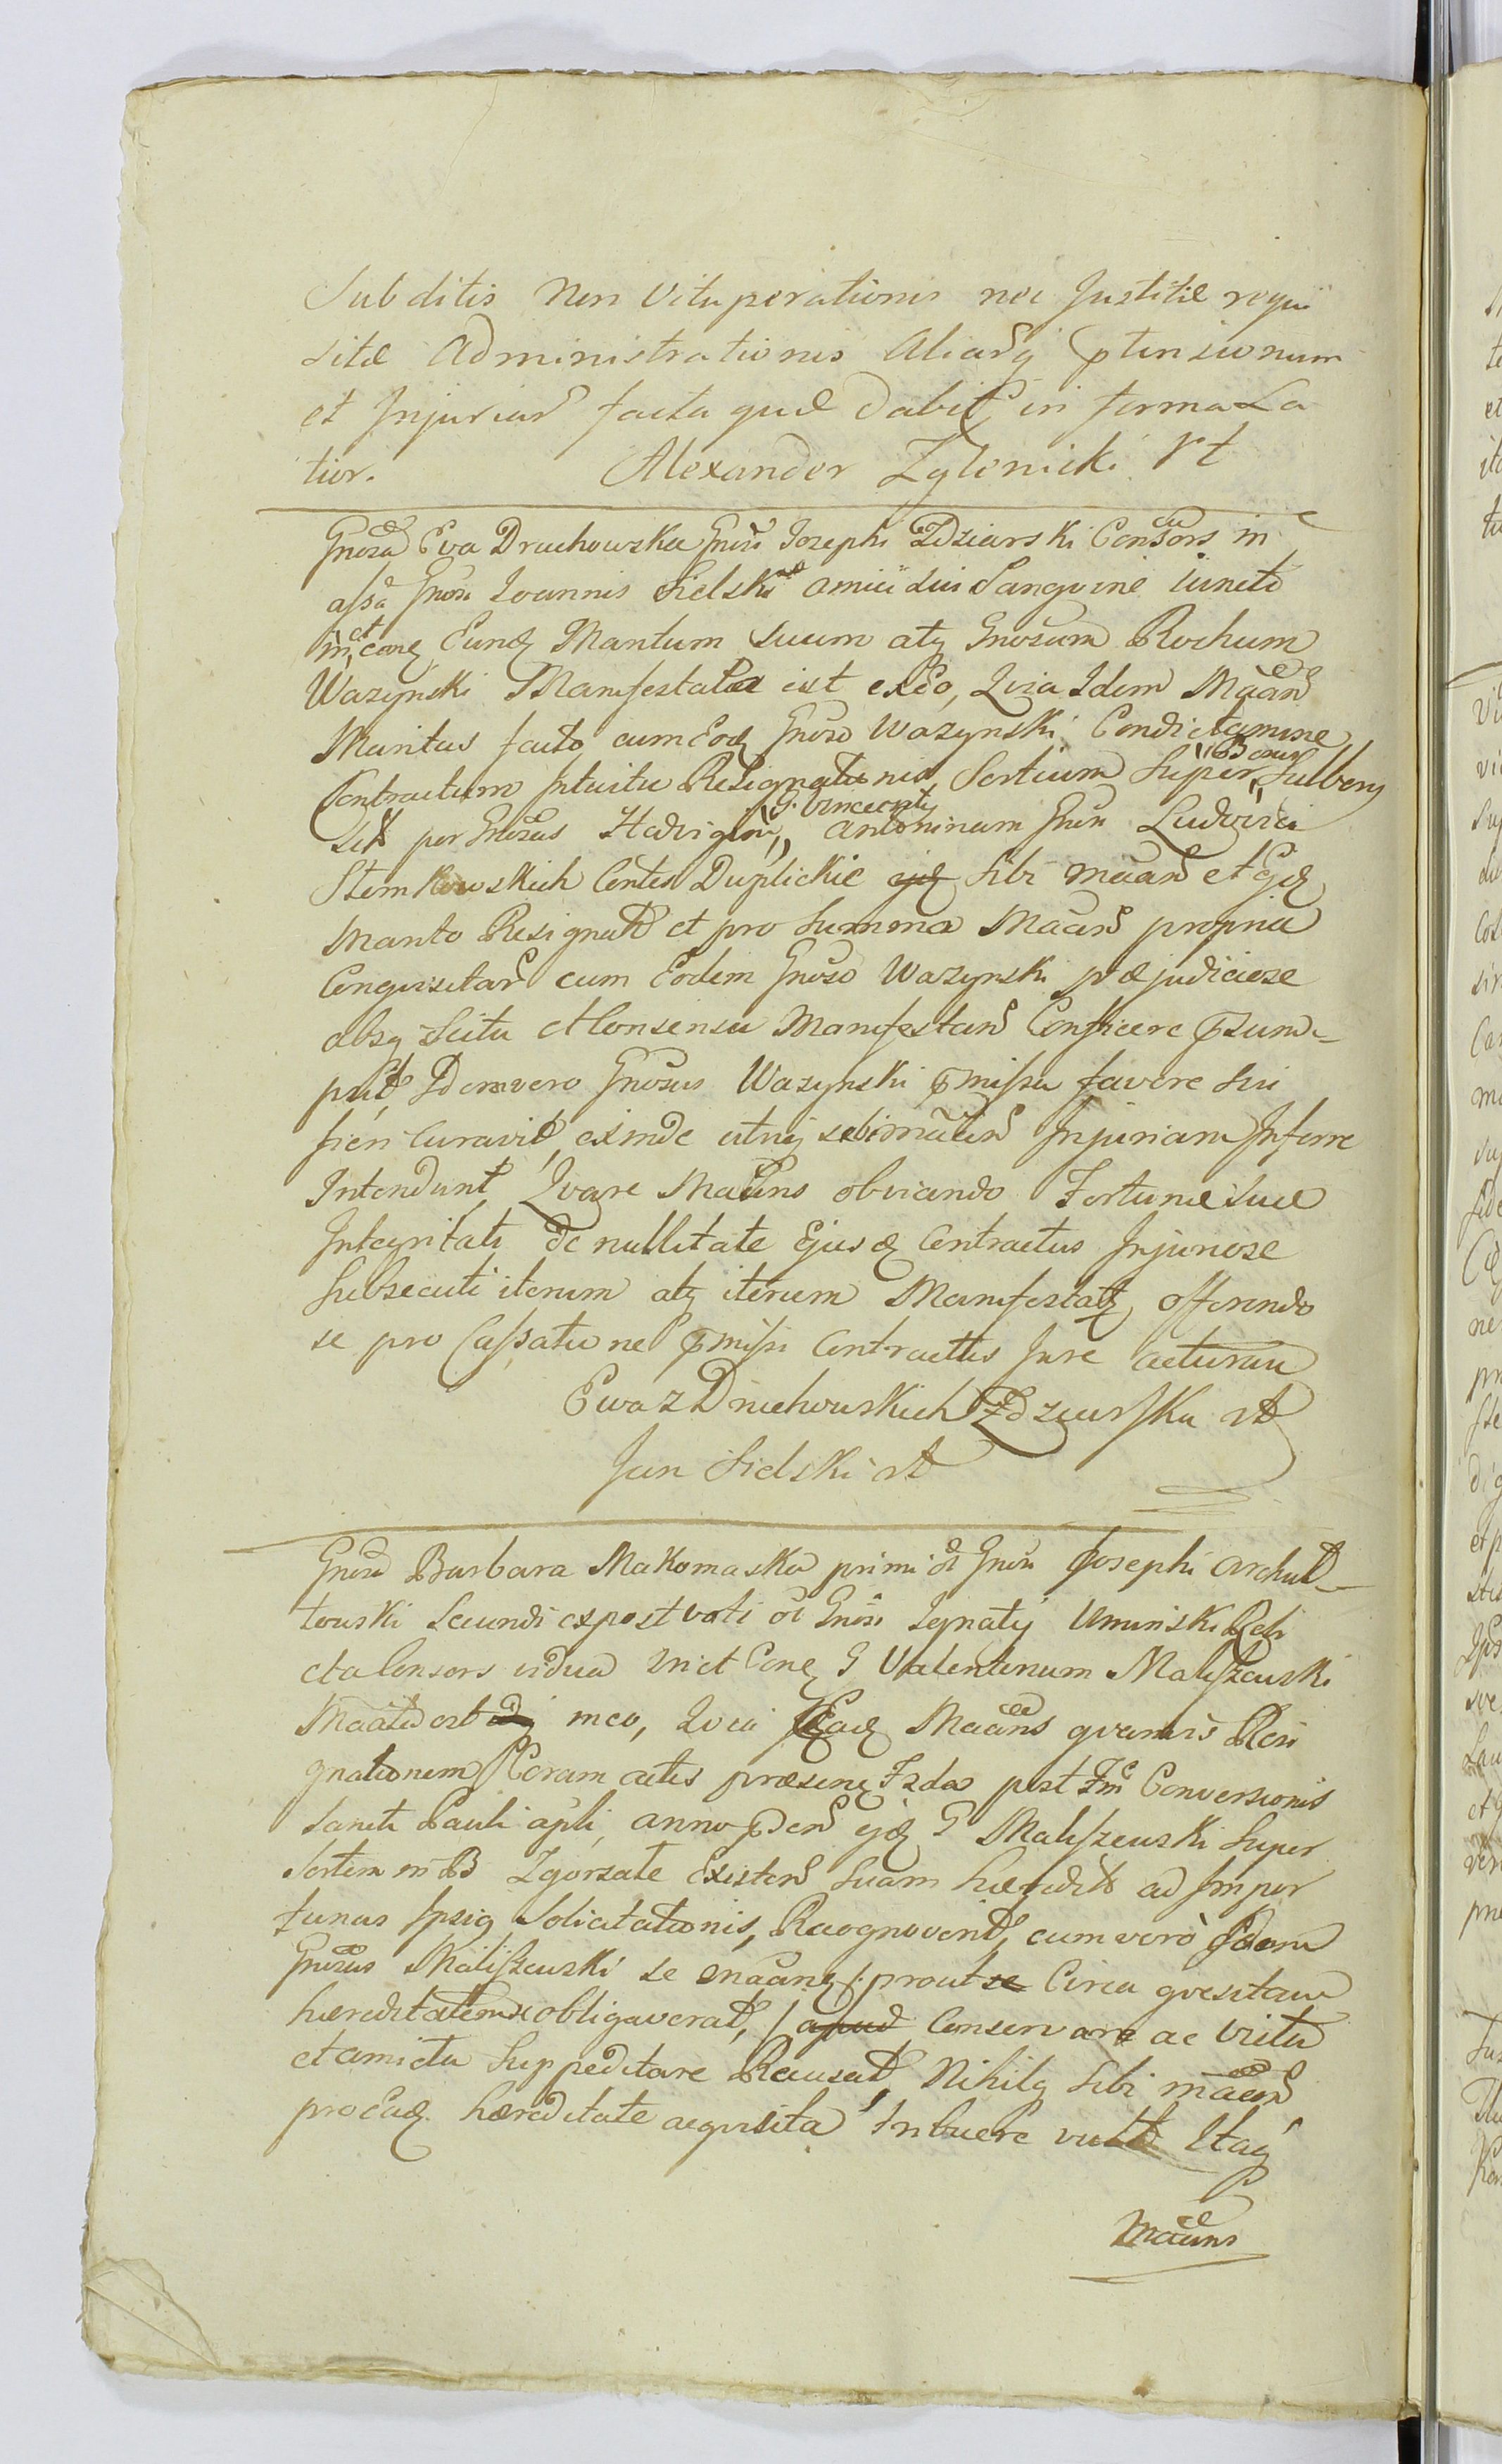 Subditis non vituperationis nec Justitiæ requi
sitæ Administrationis Aliarq ptensionum
et Injuriar facta quæ dabit in forma La
tior. Alexander Zglenicki rt
Gnosa Eva Druchowska Gnosi Josephi Zdziarski Consors in
assa Gnosi Joannis Sielski amici sui Sanguine iuncti
in et conq Eund Maritum Suum atq Gnosum Rochum
Wazynski Manifestata est exeo, Qvia Idem Maan
Maritus facto cum Eod Gnoso Wazynski Condictamine
Contractum Intuitu Resignationis Sortium Super Bonis Sulbory
Sit per Gnosas Hedvigim, G. Vincenty Antoninam Gnosi Ludovici
Stemkowskich Contes Duplickie sibi maan et Ejq
Marito Resignat et pro Summa Maan propria
Conquisitar cum Eodem Gnoso Wazynski præjudiciose
absq Scitu et Consensu Manifestan Conficere psum-
psit, Idemvero Gnosus Wazynski pmissa favore sui
fieri Curavit, exinde utriq sibi maan Injuriam Inferre
Intendunt, Qvare Maans obviando Fortunæ suæ
Integritati de nullitate Ejusd Contractus Injuriose
Subsecuti iterum atq iterum Manifestat offerendo
se pro Cassatione pmissi Contractus Jure acturam
Ewa z Druchowskich Zdziarska rt
Jan Sielski rt
Gnosa Barbara Makomaska primi oi Gnosi Josephi Archut-
towski Secundi expost voti oi Gnosi Ignatij Uminski Reli
cta Consors vidua in et Conq G Valentinum Maliszewski
Maata est in eo, Qvia Eaq Maans qvamvis Resi
gnationem Coram actis præsenq Fzda post Fm Conversionis
Sancti Pauli apli, anno pden ejq G Maliszewski Super
Sortem in B Zgorzate Existen Suam hæredit ad Impor
tunas Ipsiq Solicitationis, Recognoverit, cum verò Idem
Gnosus Maliszewski se maanq /: prout se Circa qvesitam
hæreditatem obligaverat, / Conservare ac victu
et amictu Suppeditare Recusat, Nihilq Sibi maan
pro Eaq hæreditate acqvisita tribuere vult Itaq
Maans